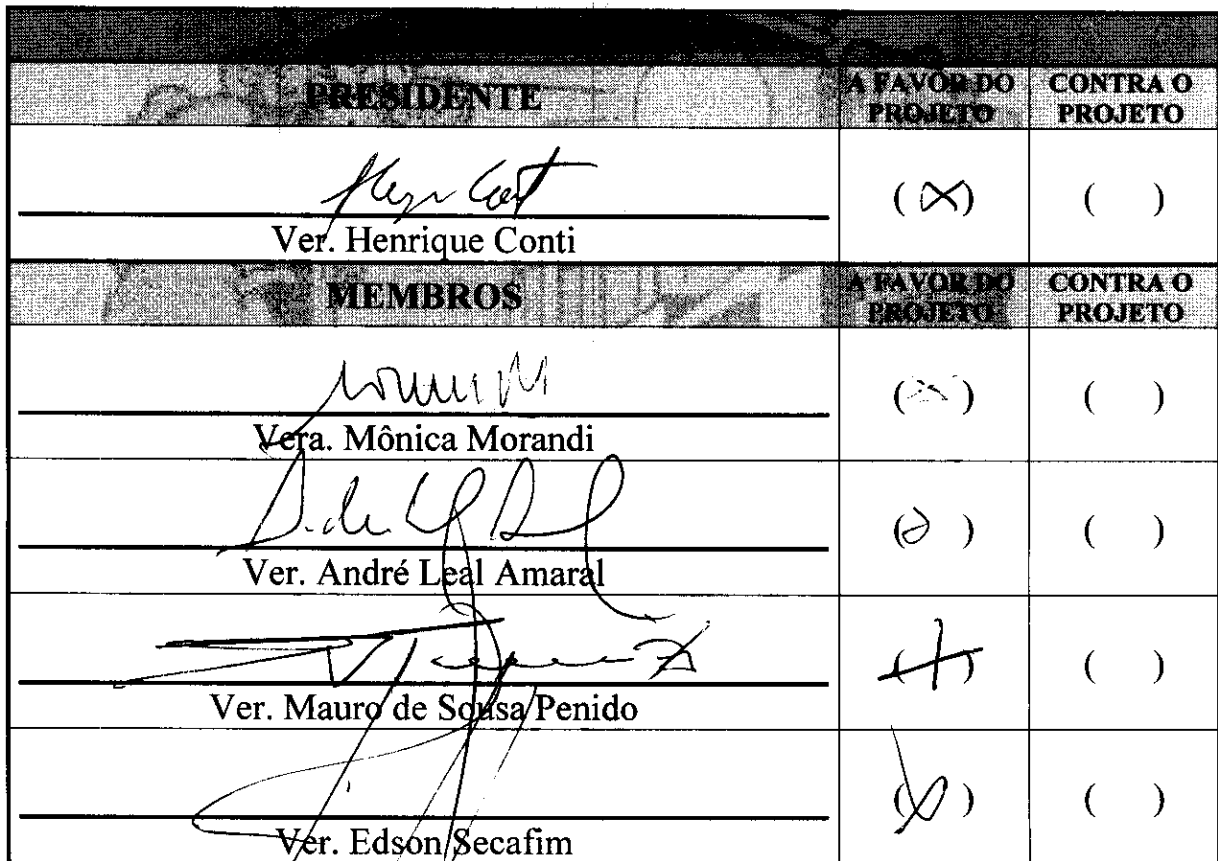 PRESIDENTE A FAVOR DO PROJETO CONTRA O PROJETO
Ver. Henrique Conti (X) ( )
MEMBROS A FAVOR DO PROJETO CONTRA O PROJETO
Vera. Mônica Morandi (X) ( )
Ver. André Leal Amaral ( ) ( )
Ver. Mauro de Sousa Penido ( ) ( )
Ver. Edson Secafim ( ) ( )